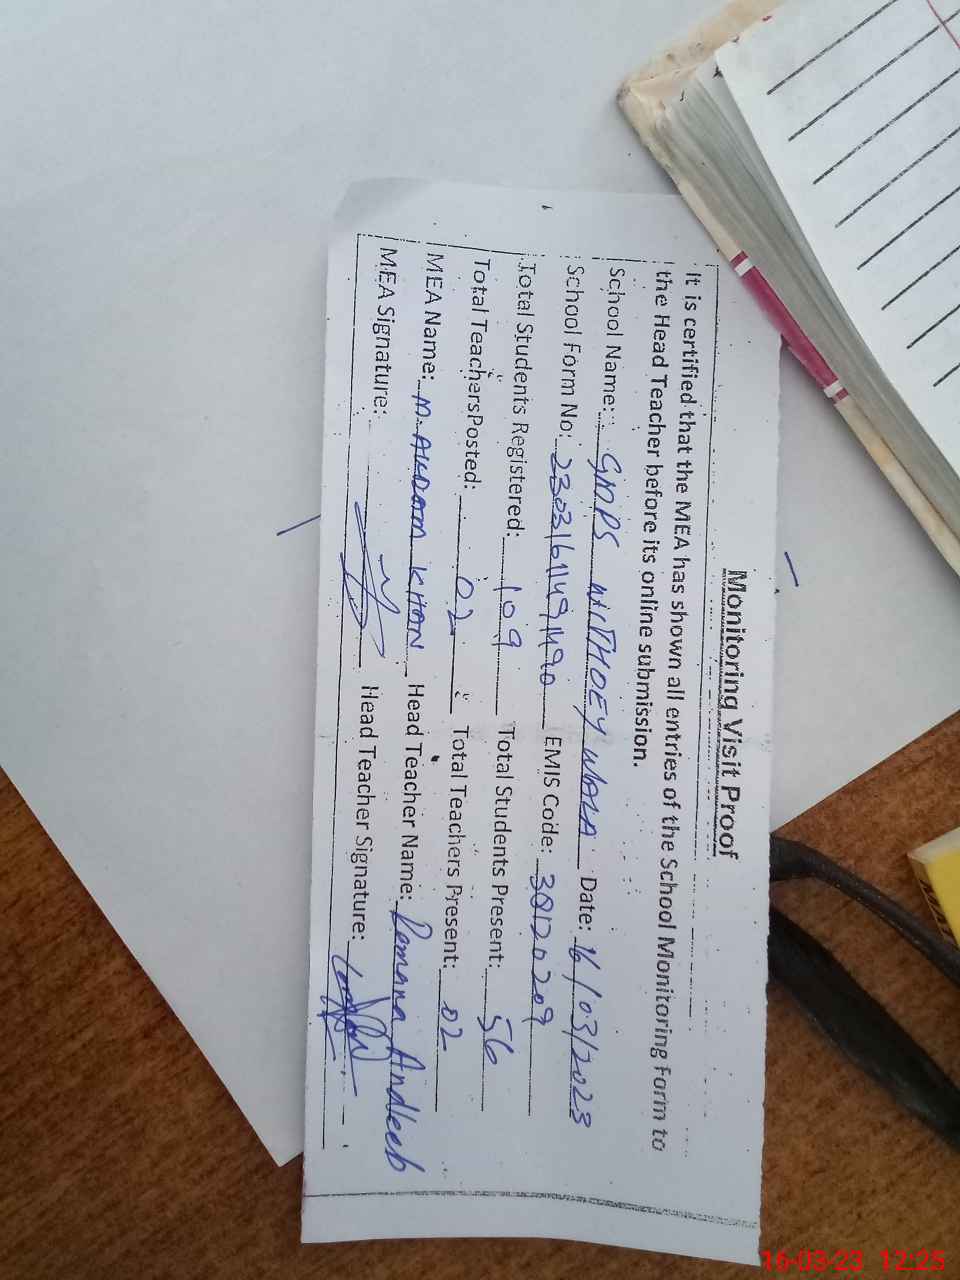 Monitoring Visit Proof
It is certified that the MEA has shown all entries of the School Monitoring Form to
the Head Teacher before its online submission.
School Name: GMPS WALA Date: 16/03/2023
School Form No: 230316114911490 EMIS Code: 30120209
Total Students Registered: 109 Total Students Present: 56
Total TeachersPosted: 02 Total Teachers Present: 02
MEA Name: M. AKRAM KHAN Head Teacher Name: Romana Andleeb
MEA Signature: Head Teacher Signature:
16-03-23 12:25